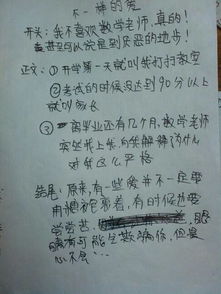 不一样的爱
开头：我不喜欢数学老师，真的！
甚至可以说是到厌恶的地步！
正文：①开学第一天就叫我打扫教室
②考试的时候没达到90分以上
就叫家长
③离毕业还有几个月，数学老师
突然找上我，向我解释为什么
对我这么严格
结尾：原来，有一些爱并不一定要
用糖衣包裹着，有时候也要
尝尝苦
有可能会欺骗你，但是
心不会……